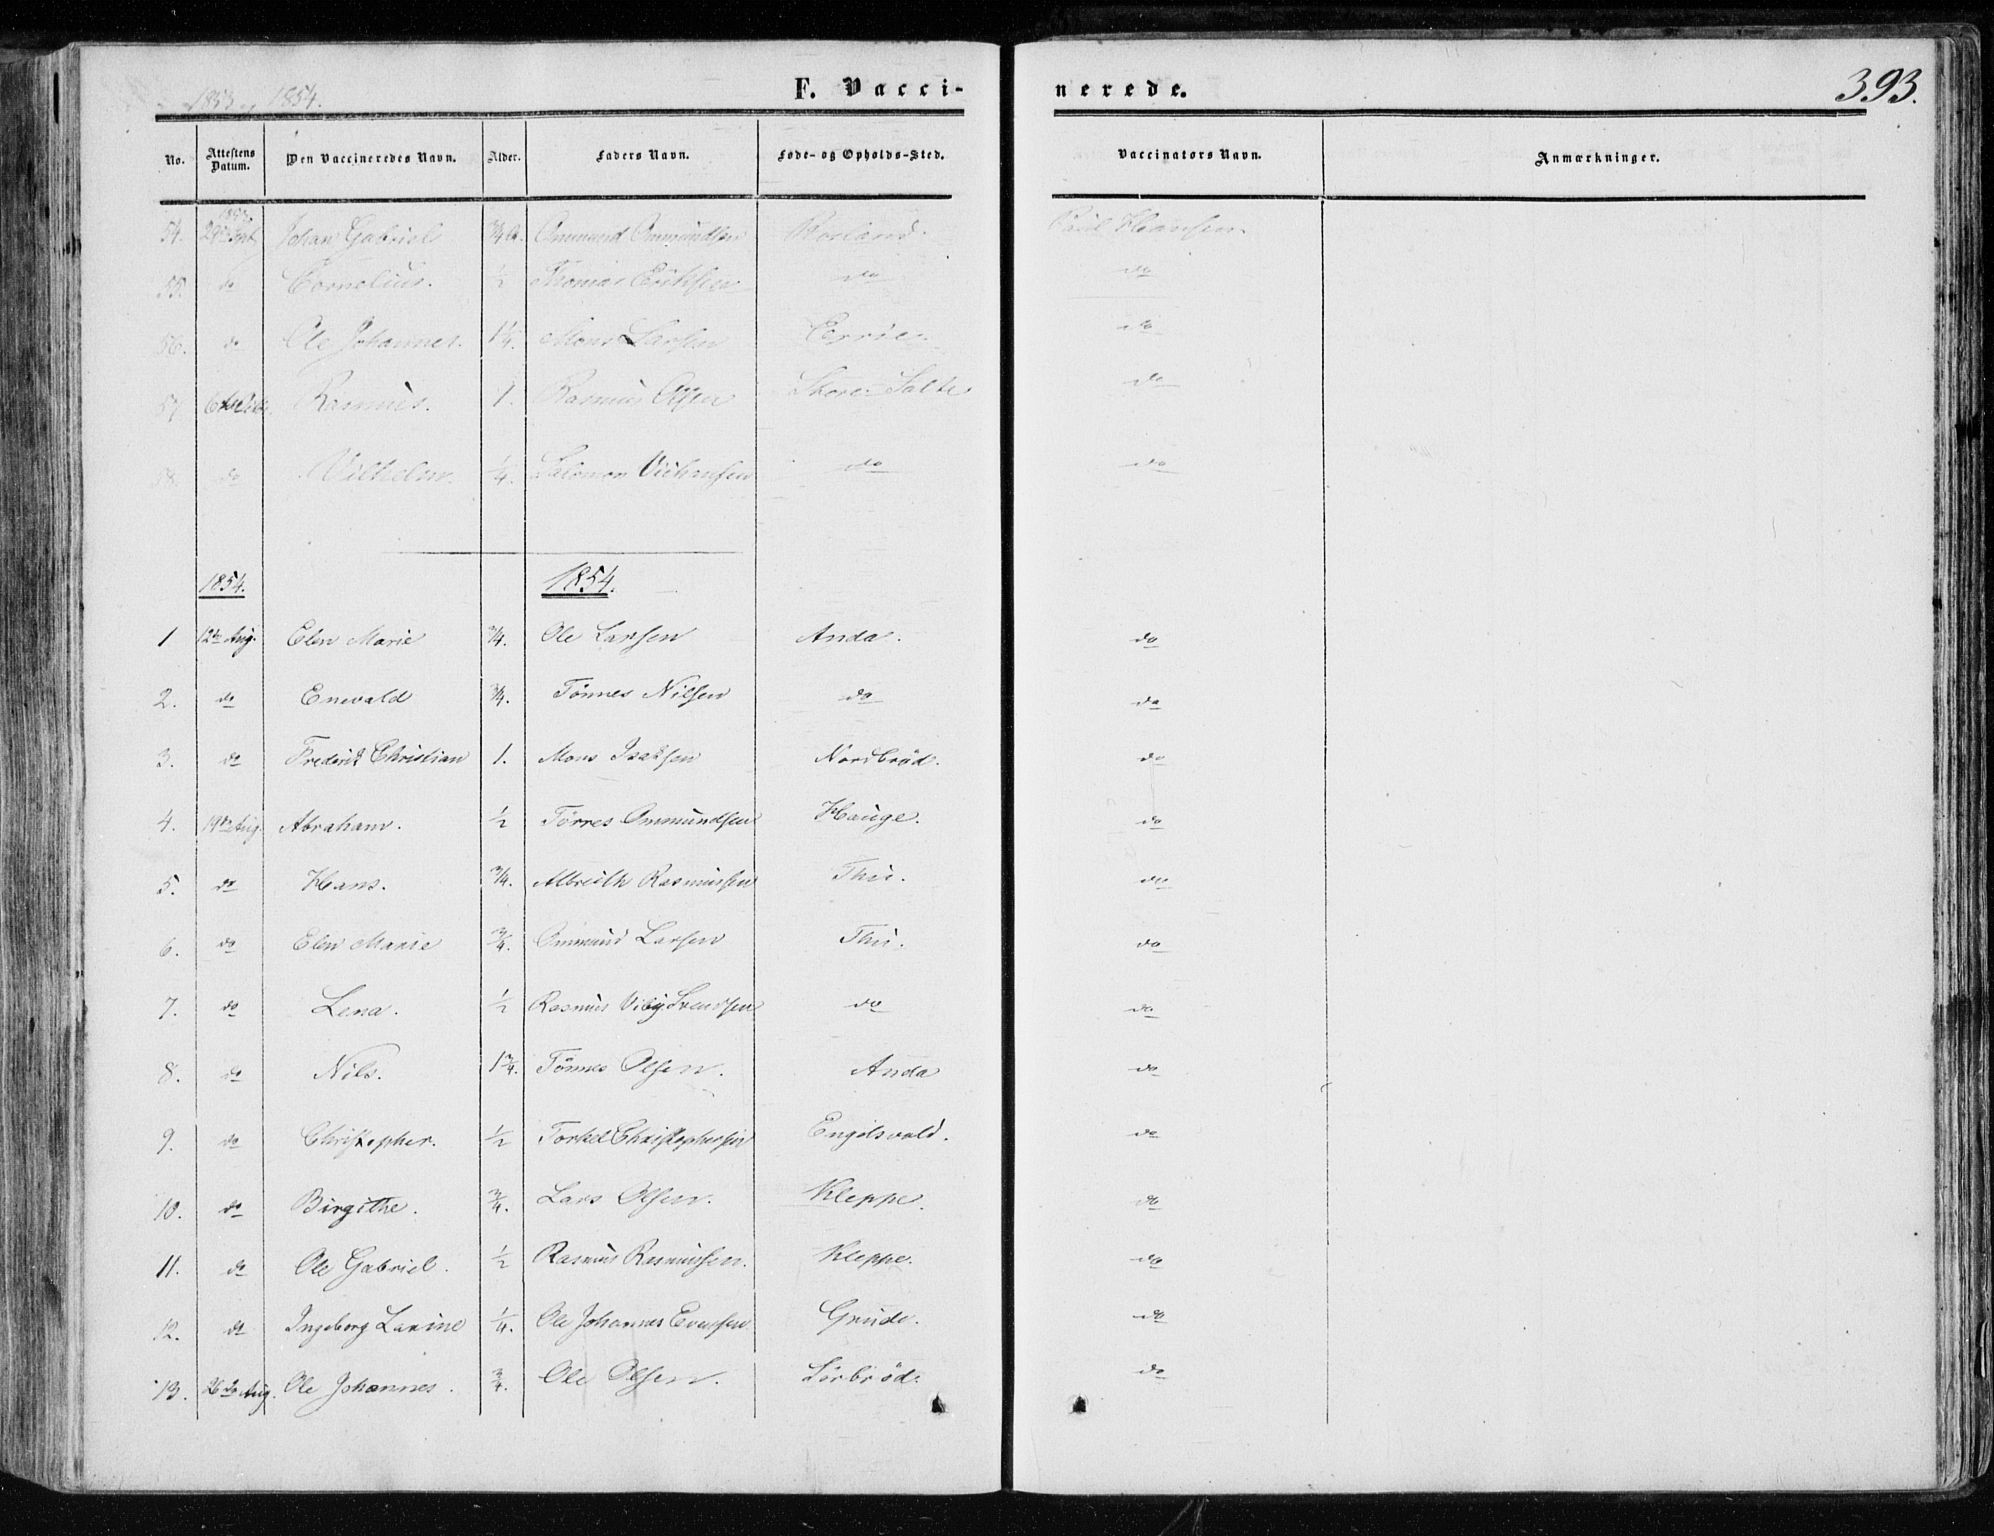 1853 og 1854.
F. Vacci-
nerede.
393.
No. Attestens Datum. Den Vaccineredes Navn. Alder. Faders Navn. Føde- og Opholds-Sted. Vaccinators Navn. Anmærkninger.
1853
54. 29de Sept. Johan Gabriel 3/4 A. Ommund Ommundsen Paul Hansen.
55. do Cornelius. 1/2 Thomas Eriksen do do
56. do Ole Johannes. 1 1/4. Mons Larsen do
57 Rasmus. 1. Rasmus Olsen Store Salte do
58. do Vilhelm. 1/4. Salomon do do
1854. 1854.
1 12te Aug. Elen Marie 3/4. Ole Larsen Anda. do
2. do Enevald 3/4. Tönnes Nilsen do do
3. do Frederik Christian 1. Mons Isaksen Nordbröd. do
4. 19de Aug. Abraham. 1/2 Törres Ommundsen Hauge. do
5. do Hans. 3/4. Albreth Rasmussen Thu. do
6. do Elen Marie 3/4. Ommund Larsen Thu. do
7. do Lena. 1/2 Rasmus Viby Svendsen do do
8. do Nils. 1 3/4. Tönnes Olsen. Anda do
9. do Christopher. 1/2 Torkel Christophersen Engelsvold. do
10. do Birgithe. 3/4. Lars Olsen. Kleppe. do
11. do Ole Gabriel. 1/2 Rasmus Rasmussen. Kleppe. do
12. do Ingeborg Laxine 1/4. Ole Johannes Evensen Grude. do
13. 26de Aug. Ole Johannes. 3/4. Ole Olsen. Sörbröd. do